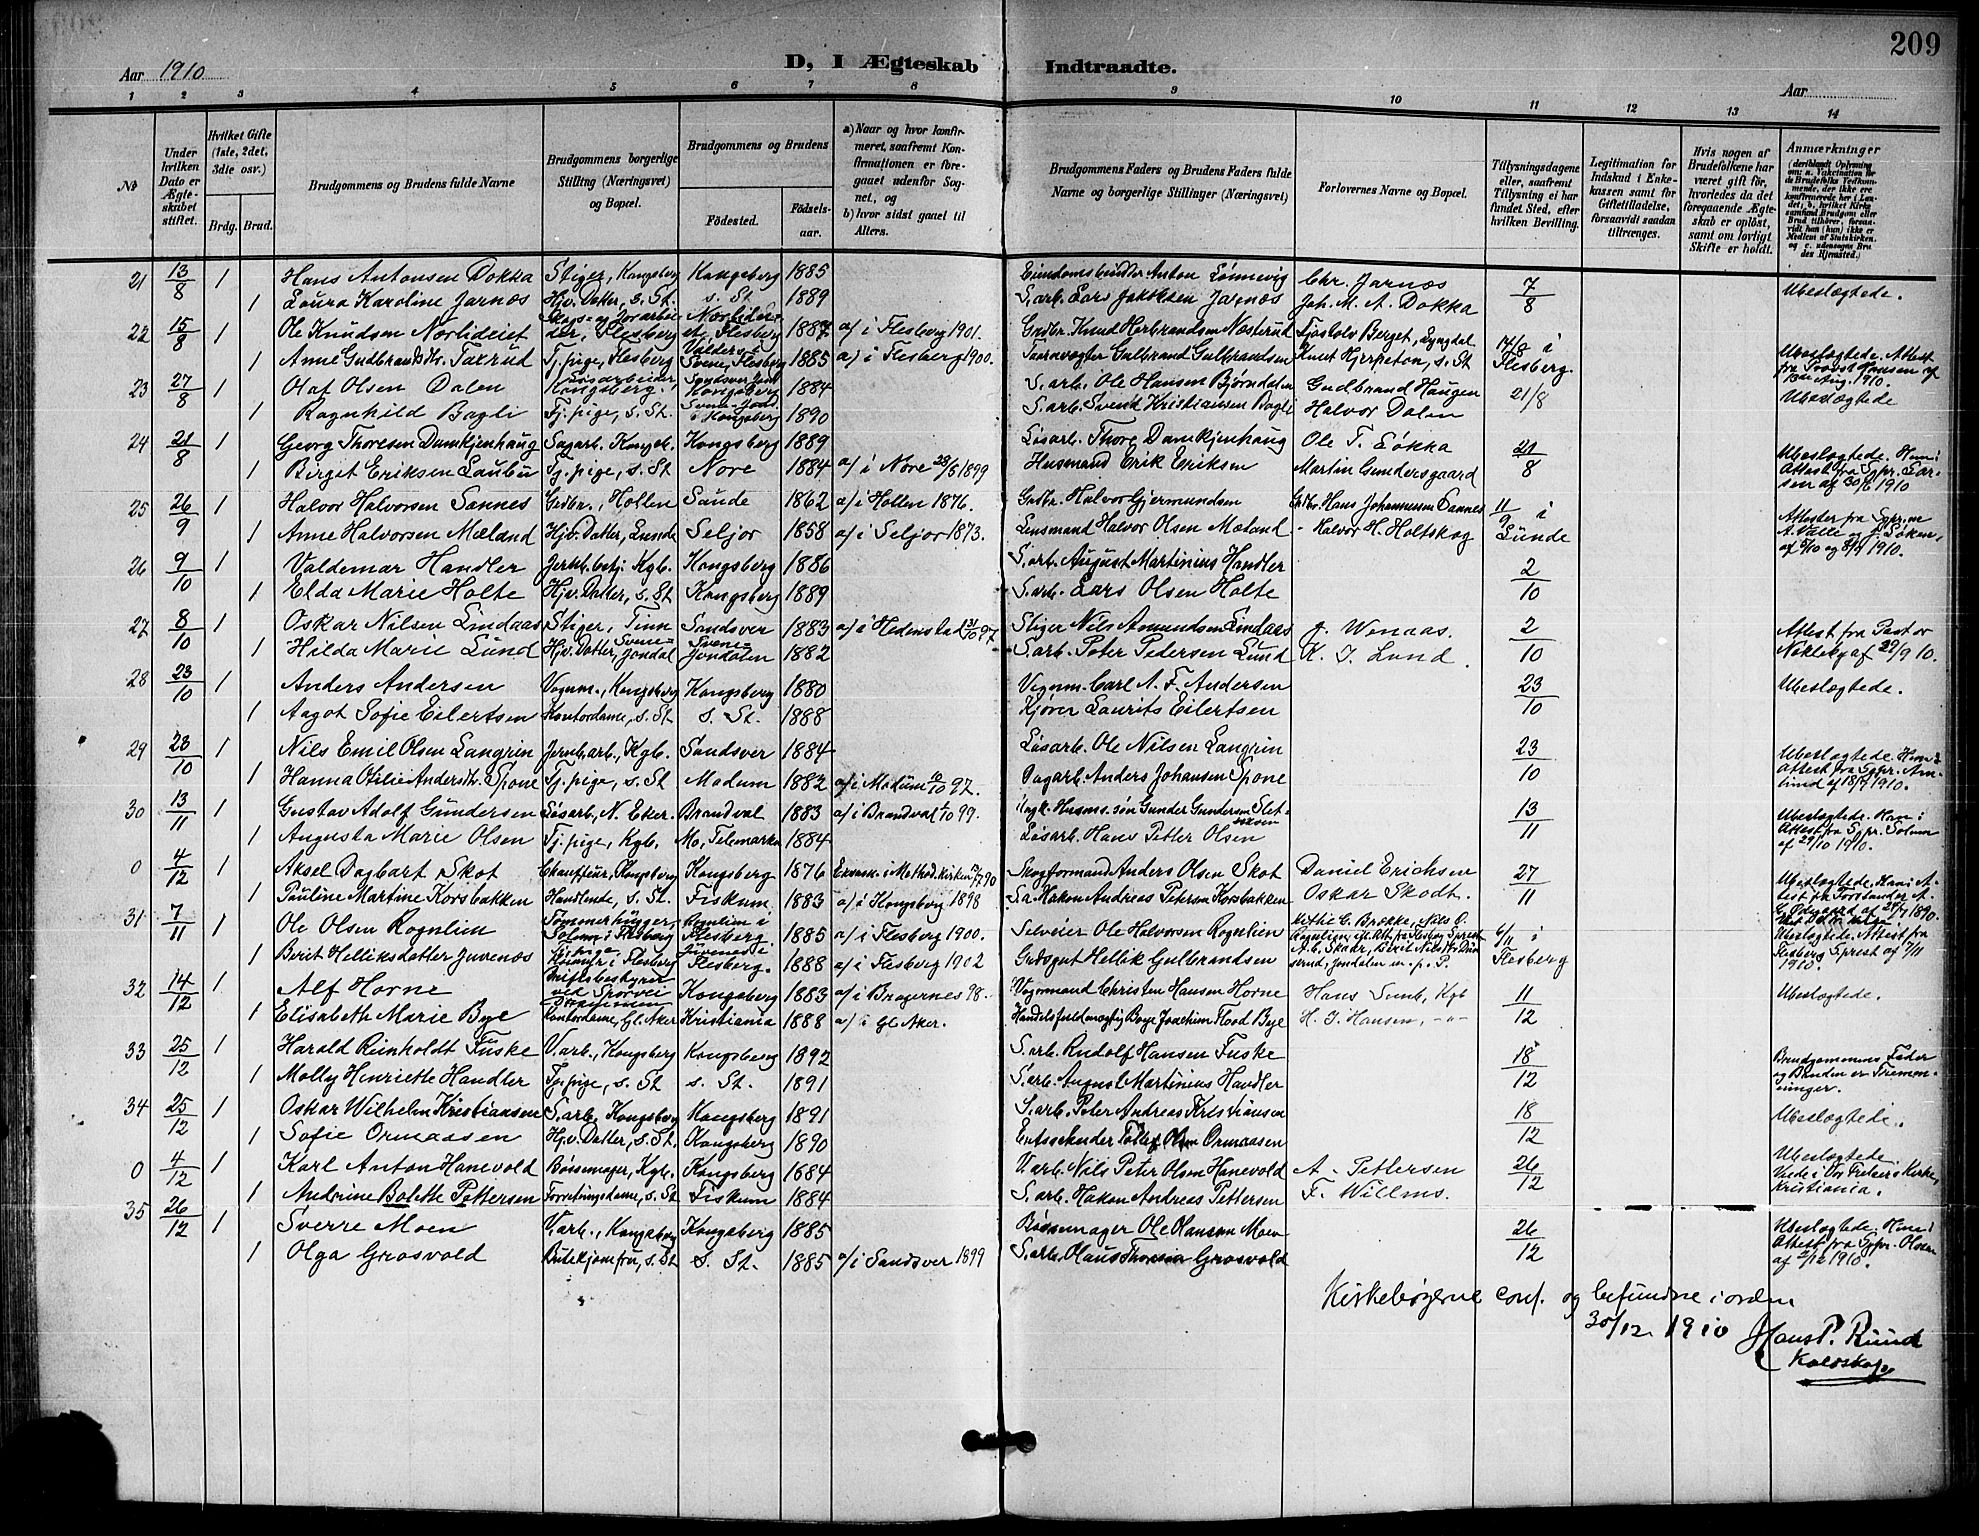 209
Aar 1910
D, I Ægteskab Indtraadte.
Aar
1 2 3 4 5 6 7 8 9 10 11 12 13 14
No
Under hvilken Dato er Ægteskabet stiftet.
Hvilket Gifte (1ste, 2det, 3die osv.)
Brdg. Brud.
Brudgommens og Brudens fulde Navne
Brudgommens borgerlige Stilling (Næringsvei) og Bopæl.
Brudgommens og Brudens
Fødested. Fødselsaar.
a) Naar og hvor konfirmeret, saafremt Konfirmationen er foregaaet udenfor Sognet, og
b) hvor sidst gaaet til Alters.
Brudgommens Faders og Brudens Faders fulde Navne og borgerlige Stillinger (Næringsvei)
Forlovernes Navne og Bopæl.
Tillysningsdagene eller, saafremt Tillysning ei har fundet Sted, efter hvilken Bevilling.
Legitimation for Indskud i Enkekassen samt for Giftetilladelse, forsaavidt saadan tiltrænges.
Hvis nogen af Brudefolkene har været gift før, hvorledes da det foregaaende Ægteskab er opløst, samt om lovligt Skifte er holdt.
Anmærkninger
21 13/8 1 Hans Antonsen Dokka Stiger, Kongsberg Kongsberg 1885 Anton Lønnevig Chr. Jarnæs 7/8 Ubeslægtede.
1 Laura Karoline Jarnæs Hjv. Datter, s. St. s. St. 1889 S. arb. Lars Jakobsen Jarnæs Joh. M. A. Dokka
22 15/8 1 Ole Knudsen Flesberg Flesberg 1887 a/ i Flesberg 1901. Grdbr. Knud Herbrandsen Berget, Lyngdal 14/8 i Flesberg.
1 Anne Gudbrandsdtr. Taxrud Tj. pige, Flesberg Svene, Flesberg 1885 a/ i Flesberg 1900. Gulbrand Gulbrandsen Knut s. St Ubeslægtede. Attest fra Provst Hansen af Aug. 1910.
23 27/8 1 Olaf Olsen Dalen Kongsberg. Kongsberg 1884 S. arb. Ole Hansen Bjørndalen Gudbrand Haugen 21/8 Ubeslægtede
1 Ragnhild Bagli Tj. pige, s. St. Kongsberg 1890 S. arb. Svend Kristiansen Bagli Halvor Dalen
24 21/8 1 Georg Thoresen Damkjenhaug Sagarb. Kongsb. Kongsberg 1889 Løsarb. Thore Damkjenhaug Ole T. Løkka 21/8
1 Birgit Eriksen Laubu Tj. pige, s. St Nore 1884 a/ i Nore 1899 Husmand Erik Eriksen Martin Gundersgaard Ubeslægtede. Attest fra Sgpr. Larsen af 30/6 1910
25 26/9 1 Halvor Halvorsen Sannes Grdbr., Hollen Saude 1862 a/ i Hollen 1876. Grdbr. Halvor Gjermundsen Grdbr. Hans Johannesen Sannes 11/9 i Lunde
1 Anne Halvorsen Mæland Hjv. Datter, Lunde Seljor 1858 a/ i Seljor 1873. Lensmand Halvor Olsen Mæland - Halvor H. Holtskog Attester fra Sgpr.ne A. Valle og J. Løken, 1910.
26 9/10 1 Valdemar Handler Jernb.betj. Kgb. Kongsberg 1886 S. arb. August Martinius Handler 2/10
1 Elda Marie Holte Hjv. Datter, s. St Kongsberg 1889 S. arb. Lars Olsen Holte
27 8/10 1 Oskar Nilsen Lindaas Stiger, Tinn Sandsver 1883 a/ i Hedenstad 31/10 97 Stiger Nils Amundsen Lindaas J. Wenaas. 2/10 Attest fra Pastor af 22/9 10.
1 Hilda Marie Lund Hjv. Datter, Svene-Jondal Svene-Jondalen 1882 S. arb. Peter Pedersen Lund K. J. Lund.
28 23/10 1 Anders Andersen Vognm., Kongsberg Kongsberg 1880 Vognm. Carl A. F. Andersen 23/10 Ubeslægtede.
1 Aagot Sofie Eilertsen Kontordame, s. St s. St. 1888 Kjører Laurits Eilertsen
29 23/10 1 Nils Emil Olsen Langrin Jernb. arb., Kgb. Sandsver 1884 Løsarb. Ole Nilsen Langrin 23/10
1 Hanna Otilie Andersdtr. Spone Tj. pige, s. St Modum 1882 a/ i Modum 97. Dagarb. Anders Johansen Spone Ubeslægtede. Attest fra Sgpr. 1910.
30 13/11 1 Gustav Adolf Gundersen Løsarb., N. Eker. Brandval 1883 a/ i Brandval 99. Gunder Gundersen 13/11
1 Augusta Marie Olsen Tj. pige, Kgb. Mo, Telemarken 1884 Løsarb. Hans Petter Olsen Ubeslægtede. Han i Attest fra Sgpr. Solum af 29/10 1910.
0 4/12 1 Aksel Dagbart Skot Chauffeur, Kongsberg Kongsberg 1876 Method. kirken 90 Skogformand Anders Olsen Skot Daniel Erichsen 27/11
1 Pauline Martine Korsbakken Handlende, s. St. Fiskum 1883 a/ i Kongsberg 1898 S.a. Hakon Andreas Petersen Korsbakken Oskar Skodt. Ubeslægtede, Han i Attest fra 1890.
31 7/11 1 Ole Olsen Rognlien Tømmerhugger, Flesberg Rognlien i Flesberg. 1885 a/ i Flesberg 1900. Selveier Ole Halvorsen Rognlien 6/11 i Flesberg
1 Berit Helliksdatter Juvenæs Flesberg Flesberg. 1888 a/ i Flesberg 1902 Gulbrandsen Ubeslægtede. Attest fra Flesberg Sprest af 7/11 1910.
32 14/12 1 Alf Horne Kongsberg 1883 a/ i Bragernes 98. Vognmand Christen Hansen Horne Hans Kgb 11/12 Ubeslægtede.
1 Elisabeth Marie Bye Kontordame, Gl. Aker Kristiania 1888 a/ i Gl Aker. Handelsfuldmægtig Boye Joachim Flood Bye H. J. Hansen, -"-
33 25/12 1 Harald Reinholdt Fuske V. arb., Kongsberg Kongsberg 1892 S. arb. Rudolf Hansen Fuske 18/12 Brudgommens Fader og Bruden er Tremenninger.
1 Molly Henriette Handler Tj. pige, s. St s. St. 1891 S. arb. August Martinius Handler
34 25/12 1 Oskar Wilhelm Kristiansen S. arb. Kongsberg Kongsberg 1891 S. arb. Peter Andreas Kristiansen 18/12 Ubeslægtede.
1 Sofie Ormaasen Hjv. Datter, s. St. Kongsberg 1890 Ormaasen
0 4/12 1 Karl Anton Hanevold Børsemager, Kgb. Kongsberg 1884 V. arb. Nils Peter Olsen Hanevold A. Pettersen 26/12 Ubeslægtede. Viede i Vor Frelsers Kirke, Kristiania.
1 Andrine Bolette Pettersen Forretningsdame, s. St Fiskum 1884 S. arb. Hakon Andreas Pettersen F. Willms.
35 26/12 1 Sverre Moen V. arb., Kongsberg Kongsberg 1885 Børsemager Ole Hansen Moen 26/12
1 Olga Grosvold s. St s. St. 1885 a/ i Sandsver 1899 S. arb. Olaus Thoresen Grosvold Ubeslægtede. Attest fra Sgpr. Olsen af 2/12 1910.
Kirkebøgerne conf. og befundne i orden
30/12 1910 Hans P. Ruud